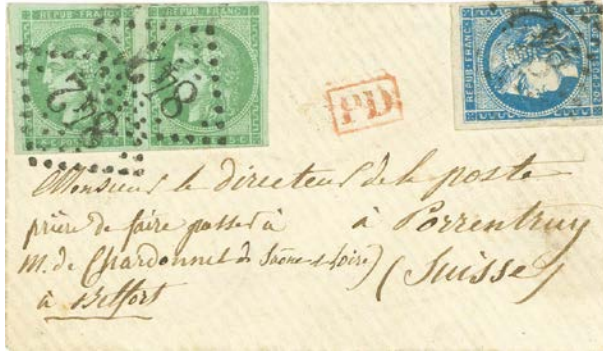 REPUB·FRANC REPUB·FRANC REPUB·FRANC
842 842 842
PD
Monsieur le directeur de la poste
prière de faire passer à à Porrentruy
M. de Chardonnet de Saône-et-Loire) (Suisse)
à Belfort